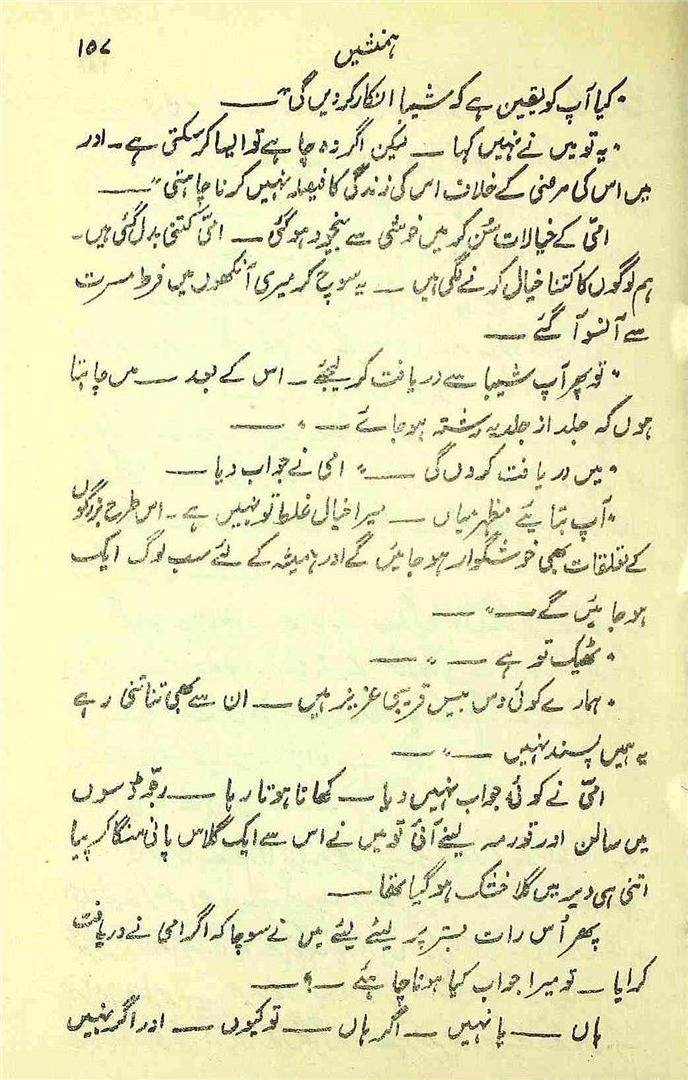 ہمنشیں ۱۵۷
"کیا آپ کو یقین ہے کہ شیبا انکار کر دیں گی" —
"یہ تو میں نے نہیں کہا — لیکن اگر وہ چاہے تو ایسا کر سکتی ہے۔ اور
میں اس کی مرضی کے خلاف اس کی زندگی کا فیصلہ نہیں کرنا چاہتی" —
امّی کے خیالات سُن کر میں خوشی سے بیخود ہو گئی — امّی کتنی بدل گئی ہیں۔
ہم لوگوں کا کتنا خیال کرنے لگی ہیں — یہ سوچ کر میری آنکھوں میں فرط مسرت
سے آنسو آ گئے —
"تو پھر آپ شیبا سے دریافت کر لیجئے۔ اس کے بعد — میں چاہتا
ہوں کہ جلد از جلد یہ رشتہ ہو جائے — " —
"میں دریافت کر دوں گی — " امی نے جواب دیا —
"آپ بتایئے مظہر میاں — میرا خیال غلط تو نہیں ہے۔ اس طرح بزرگوں
کے تعلقات بھی خوشگوار ہو جائیں گے اور ہمیشہ کے لئے سب لوگ ایک
ہو جائیں گے — " —
"ٹھیک تو ہے — " —
"ہمارے کوئی دس بیس قریبی عزیز ہیں — ان سے بھی تنا تنی رہے
یہ ہمیں پسند نہیں — " —
امّی نے کوئی جواب نہیں دیا — کھانا ہوتا رہا — رجّو ڈوسوں
میں سالن اور قورمہ لینے آئی تو میں نے اس سے ایک گلاس پانی منگا کر پیا
اتنی ہی دیر میں گلا خشک ہو گیا تھا —
پھر اُس رات بستر پر لیٹے لیٹے میں نے سوچا کہ اگر امی نے دریافت
کرایا — تو میرا جواب کیا ہونا چاہئے — ؟ —
ہاں — یا نہیں — اگر ہاں — تو کیوں — اور اگر نہیں